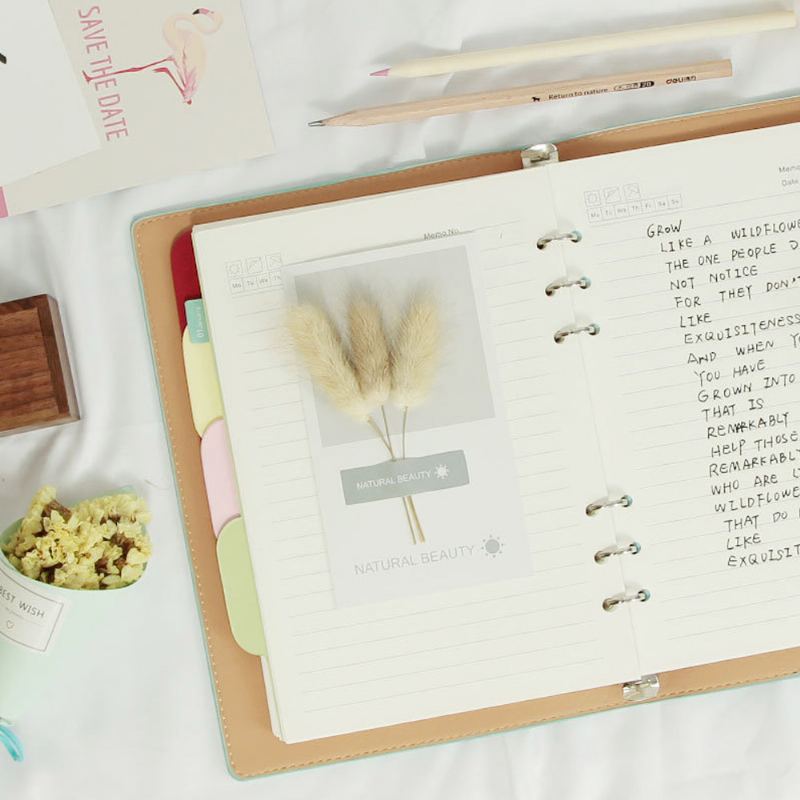 SAVE THE DATE
Return to nature
deli
Memo No.
Mo Tu We Th
01
NATURAL BEAUTY
NATURAL BEAUTY
BEST WISH
Memo
Date
Mo Tu We Th Fr Sa Su
GROW
LIKE A WILDFLOWE
THE ONE PEOPLE D
NOT NOTICE
FOR THEY DON'T
LIKE
EXQUISITENESS
AND WHEN YO
YOU HAVE
GROWN INTO
THAT IS
REMARKABLY
HELP THOSE
REMARKABLY
WHO ARE L
WILDFLOWE
THAT DO
LIKE
EXQUISIT